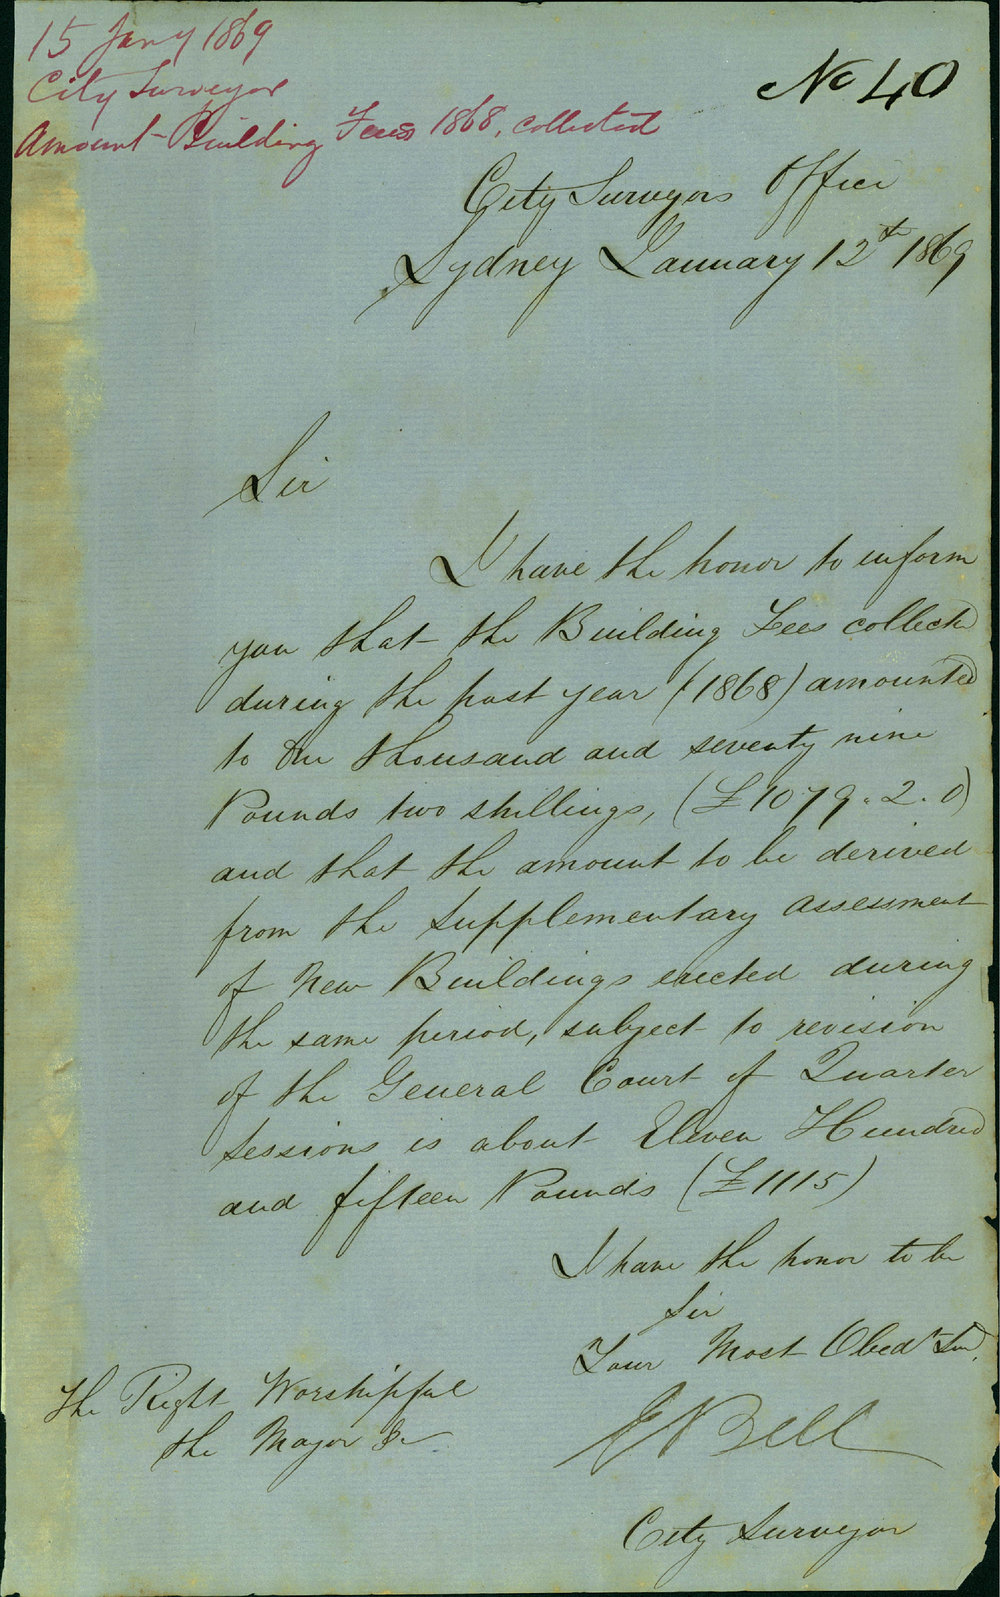 15 Jany 1869
City Surveyor
Amount Building Fees 1868, collected
No 40
City Surveyors Office
Sydney January 12th 1869
Sir
I have the honor to inform
you that the Building Fees collected
during the past year (1868) amounted
to One thousand and seventy nine
Pounds two shillings, (£1079.2.0)
and that the amount to be derived
from the Supplementary Assessment
of New Buildings erected during
the same period, subject to revision
of the General Court of Quarter
Sessions is about Eleven Hundred
and fifteen Pounds (£1115)
I have the honor to be
Sir
Your Most Obedt Svt.
The Right Worshipful
the Mayor &c
E Bell
City Surveyor